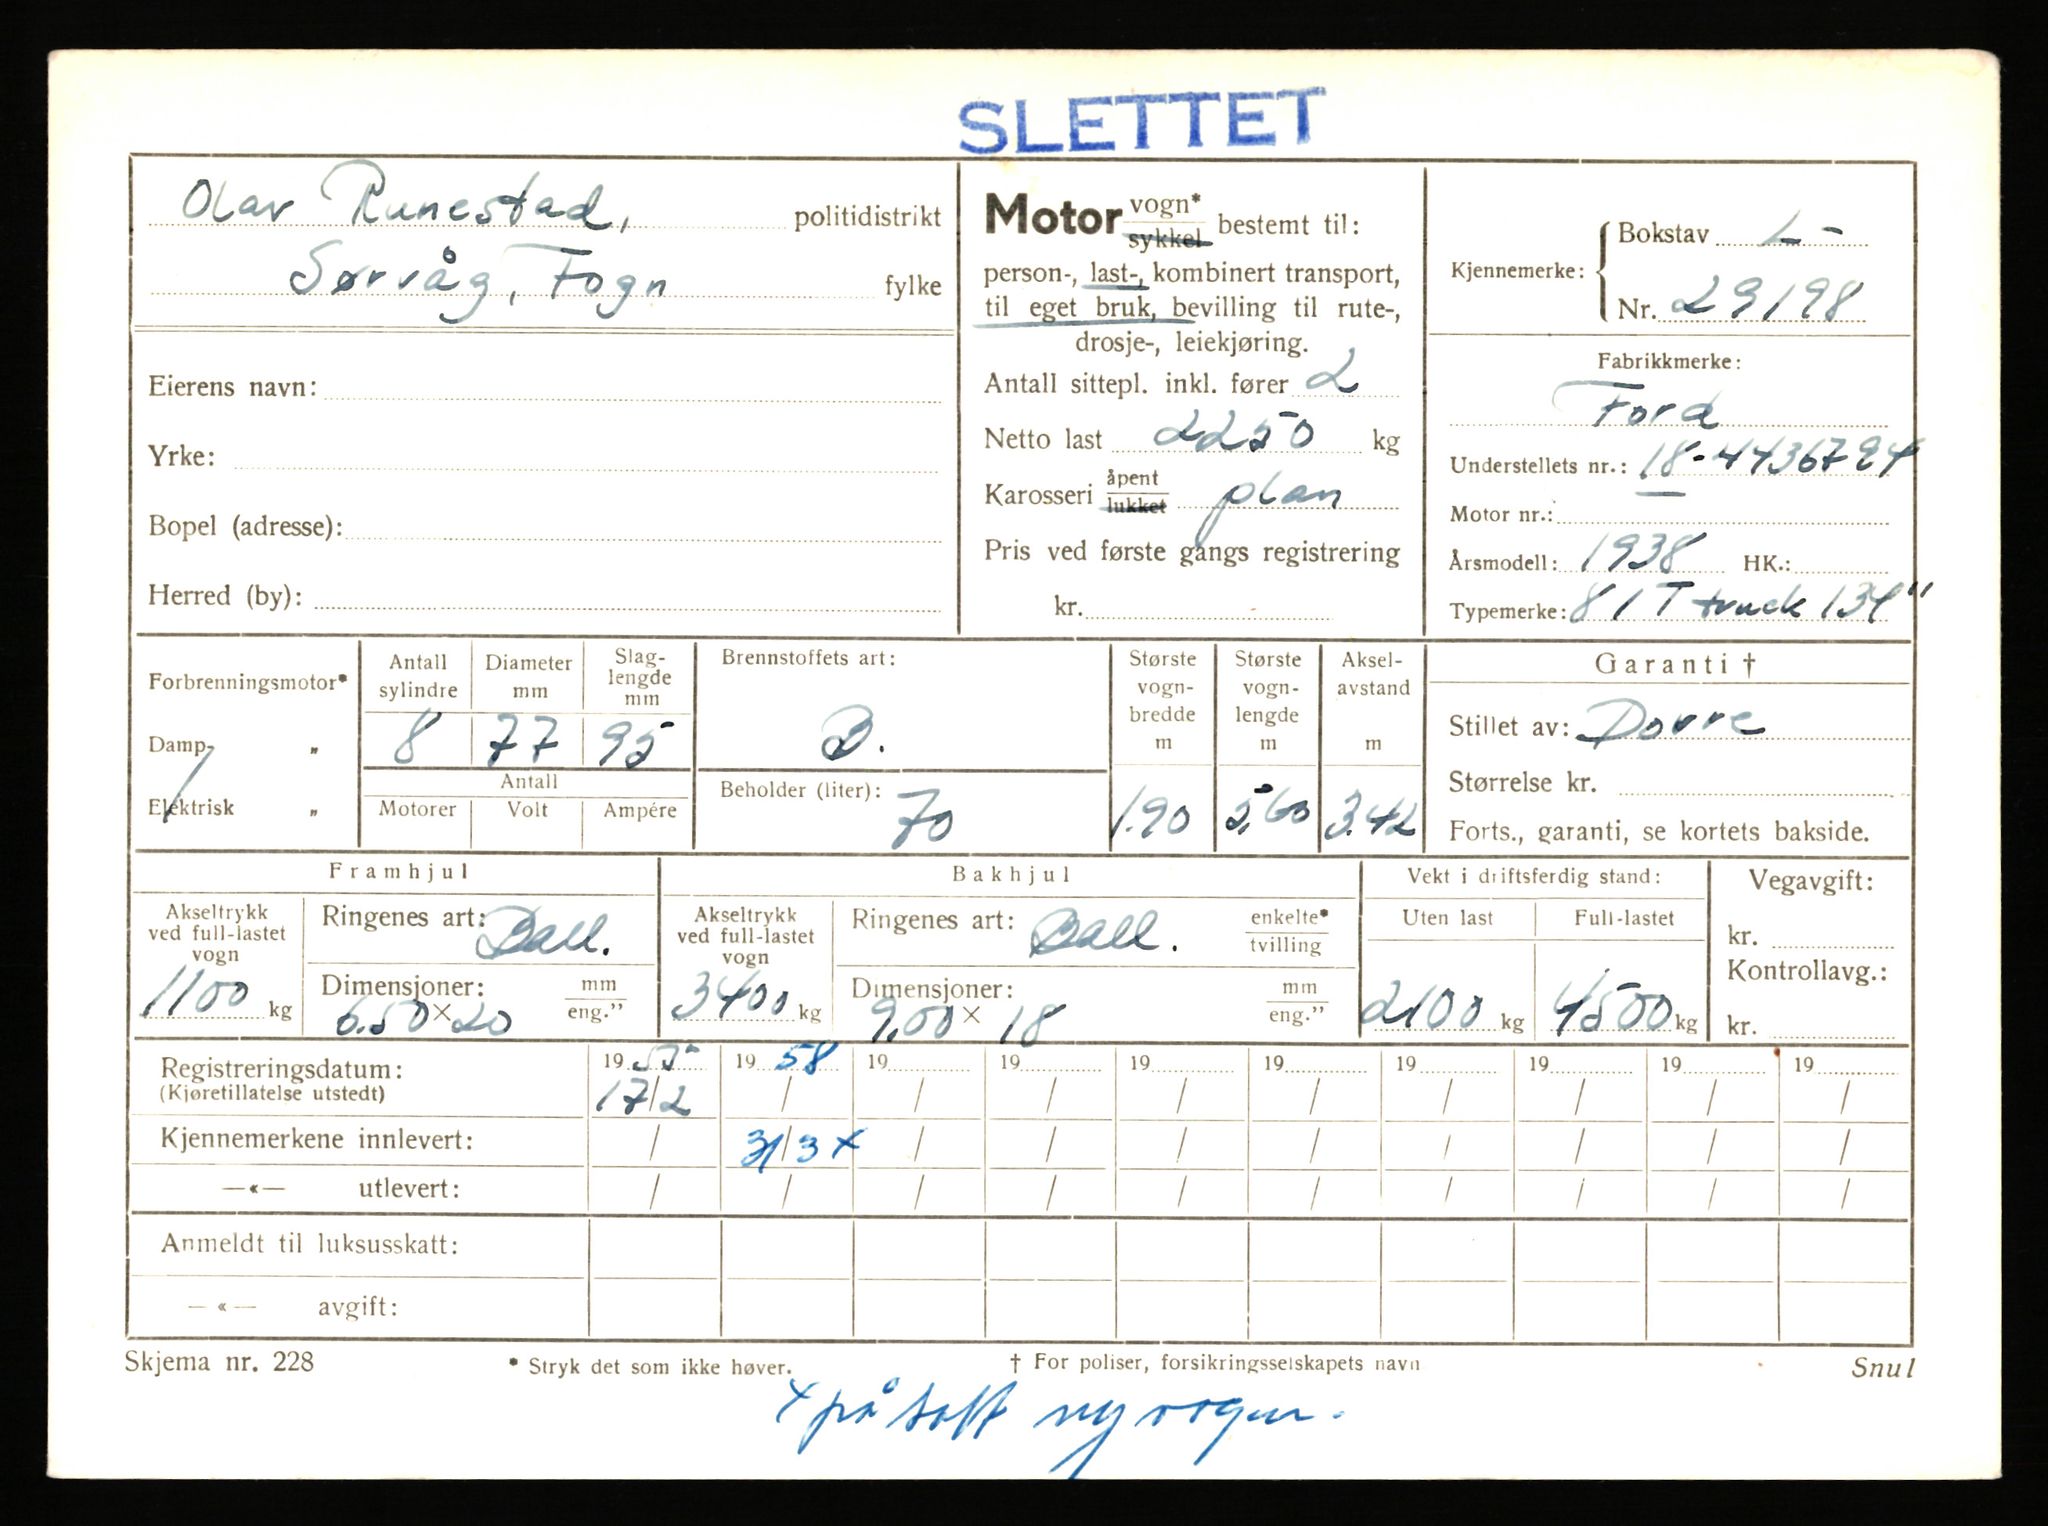 SLETTET
Olav Runestad, politidistrikt
Sørvåg, Fogn fylke
Eierens navn:
Yrke:
Bopel (adresse):
Herred (by):
Motor vogn* sykkel bestemt til:
person-, last-, kombinert transport,
til eget bruk, bevilling til rute-,
drosje-, leiekjøring.
Antall sittepl. inkl. fører 2
Netto last 2250 kg
Karosseri åpent lukket plan
Pris ved første gangs registrering
kr.
Kjennemerke: Bokstav L-
Nr. 29198
Fabrikkmerke:
Ford
Understellets nr.: 18-4436794
Motor nr.:
Årsmodell: 1938 HK.:
Typemerke: 81 T truck 134"
Forbrenningsmotor*
Damp- „
Elektrisk „
Antall sylindre 8
Diameter mm 77
Slag-lengde mm 95
Antall
Motorer Volt Ampére
Brennstoffets art:
B.
Beholder (liter): 70
Største vogn-bredde m 1.90
Største vogn-lengde m 5,60
Aksel-avstand m 3.42
Garanti †
Stillet av: Dovre
Størrelse kr.
Forts., garanti, se kortets bakside.
Framhjul
Akseltrykk ved full-lastet vogn 1100 kg
Ringenes art: Ball.
Dimensjoner: 6.50 × 20 mm eng."
Bakhjul
Akseltrykk ved full-lastet vogn 3400 kg
Ringenes art: Ball. enkelte* tvilling
Dimensjoner: 9,00 × 18 mm eng."
Vekt i driftsferdig stand:
Uten last Full-lastet
2100 kg 4500 kg
Vegavgift:
kr.
Kontrollavg.:
kr.
Registreringsdatum: 19 55 19 58 19 19 19 19 19 19 19 19
(Kjøretillatelse utstedt) 17/2 / / / / / / / / /
Kjennemerkene innlevert: / 31/3 x / / / / / / / /
—«— utlevert: / / / / / / / / / /
Anmeldt til luksusskatt:
—«— avgift:
Skjema nr. 228 * Stryk det som ikke høver. † For poliser, forsikringsselskapets navn Snul
x på satt ny vogn.